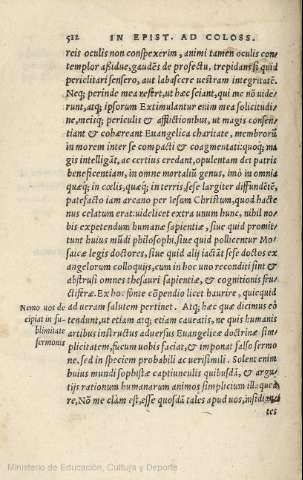 522 IN EPIST. AD COLOSS.
reis oculis non conspexerim, animi tamen oculis con=
templor assidue, gaudēs de profectu, trepidans si quid
periclitari sensero, aut labascere uestram integritatē.
Neq; perinde mea refert, ut hæc sciant, qui me nō uide=
runt, atq; ipsorum Extimulantur enim mea solicitudi=
ne, meisq; periculis & afflictionibus, ut magis consen=
tiant & cohæreant Euangelica charitate, membrorū
in morem inter se compacti & coagmentati: quoq; ma
gis intelligāt, ac certius credant, opulentam dei patris
beneficentiam, in omne mortaliū genus, imò in omnia
quæq; in cœlis, quæq; in terris, sese largiter diffundētē,
patefacto iam arcano per Iesum Christum, quod hacte
nus celatum erat: uidelicet extra unum hunc, nihil no=
bis expetendum humanæ sapientiæ, siue quid promit=
tunt huius mūdi philosophi, siue quid pollicentur Mo=
saicæ legis doctores, siue quid alij iactāt sese doctos ex
angelorum colloquijs, cum in hoc uno reconditi sint &
abstrusi omnes thesauri sapientiæ, & cognitionis fru=
ctiferæ. Ex hoc fonte cōpendio licet haurire, quicquid
ad ueram salutem pertinet. Atq; hæc quæ dicimus eò
tendunt, ut etiam atq; etiam caueatis, ne quis humanis
artibus instructus aduersus Euangelicæ doctrinæ sim=
plicitatem, fucum uobis faciat, & imponat falso sermo
ne, sed in speciem probabili ac uerisimili. Solent enim
huius mundi sophistæ captiunculis quibusdā, & argu=
tijs rationum humanarum animos simplicium illaquea
re, Nō me clàm est, esse quosdā tales apud uos, insidian
tes
Nemo uos de
cipiat in su=
blimitate
sermonis
Ministerio de Educación, Cultura y Deporte